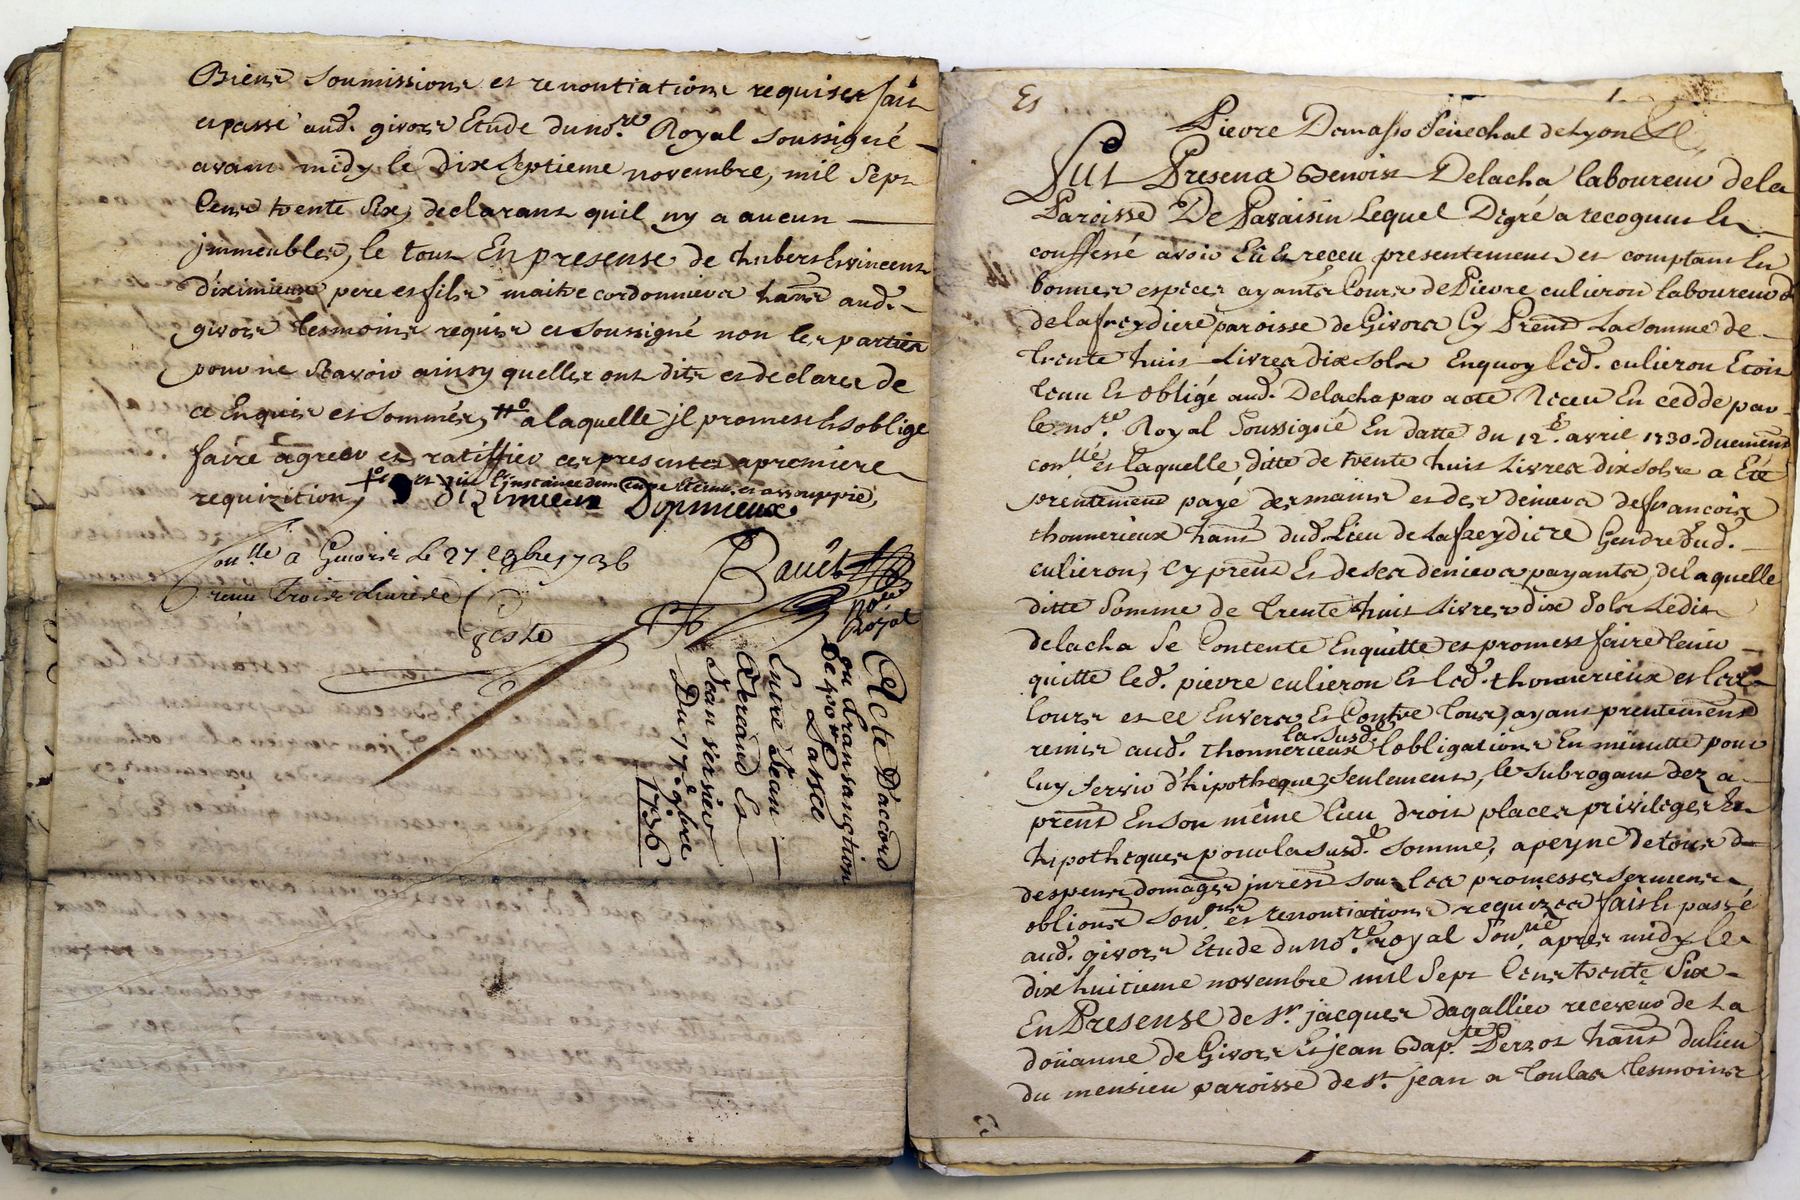 Biens soumissions et renontiations requises fait
et passé aud. givors Etude du no.re Royal soussigné
avant midy le dix septieme novembre, mil sept
Cens trente six, declarant quil ny a aucun
jmmeubles, le tout En presense de hubert et vincent
diximieux pere et fils maitre cordonniers hans aud.
givors tesmoins requis et soussigné non les parties
pour ne scavoir ainsy quelles ont dits et declarer de
ce Enquis et sommés, a laquelle jl promest et soblige
faire agreer et ratiffier ces presentes a premiere
requizition
et assouppie
dizimieux Diximieux
Con.lle a Givors le 27 9bre 1736
receu Trois Livres
Bauet
no.re Royal
Acte D'accord
ou transanction
de porte
Passée
Entre Jean
Beraud Et
Jean versieu
Du 17.e 9bre
1736
Es
Pierre Domasso Senechal de Lyon
Fut Presena Benoist Delacha laboureur de la
Paroisse De Pavaisin Lequel Degré a recognu Et
confessé avoir Eü Et receu presentement et comptant En
bonnes especes ayants Cours de Pierre culieron laboureur
de la freydiere paroisse de Givors Cy Prent La somme de
trente huit Livres dix sols Enquoy led. culieron Etoit
tenu Et obligé aud. Delacha par acte Receu En cedde par
le no.re Royal Soussigné En datte du 12.e avril 1730. duement
con.llé et laquelle ditte de trente huit Livres dix sols a Eté
prentement payé des mains et des deniers de francois
thonnerieux hans dud. Lieu de La freydiere Gendre dud.
culieron, cy prent Et de ses deniers payants, de laquelle
ditte Somme de trente huit Livres dix sols Ledit
delacha Se Contente En quitte et promest faire tenir
quitte led. pierre culieron Et led. thonnerieux et les
leurs et ce Envers Et Contre tous, ayant prentement
la susd.
remis aud. thonnerieux lobligations En minutte pour
luy servir d'hipotheque, Seulement, le Subrogant dez a
prent En son même lieu droit places privileges Et
hipotheques pour la susd. somme, a peyne de tous d
despens domages jnrest sous les promesses serment
oblions sou.ons et renontiations requizes fait et passé
aud. givors Etude du no.re royal sou.né apres midy le
dix huitieme novembre mil Sept Cens trente Six
En Presense de S.r jacques Dagallier receveur de La
doüanne de Givors Et jean Bap.te Perzot hans du lieu
du mensieu paroisse de S.t jean a toulas tesmoins